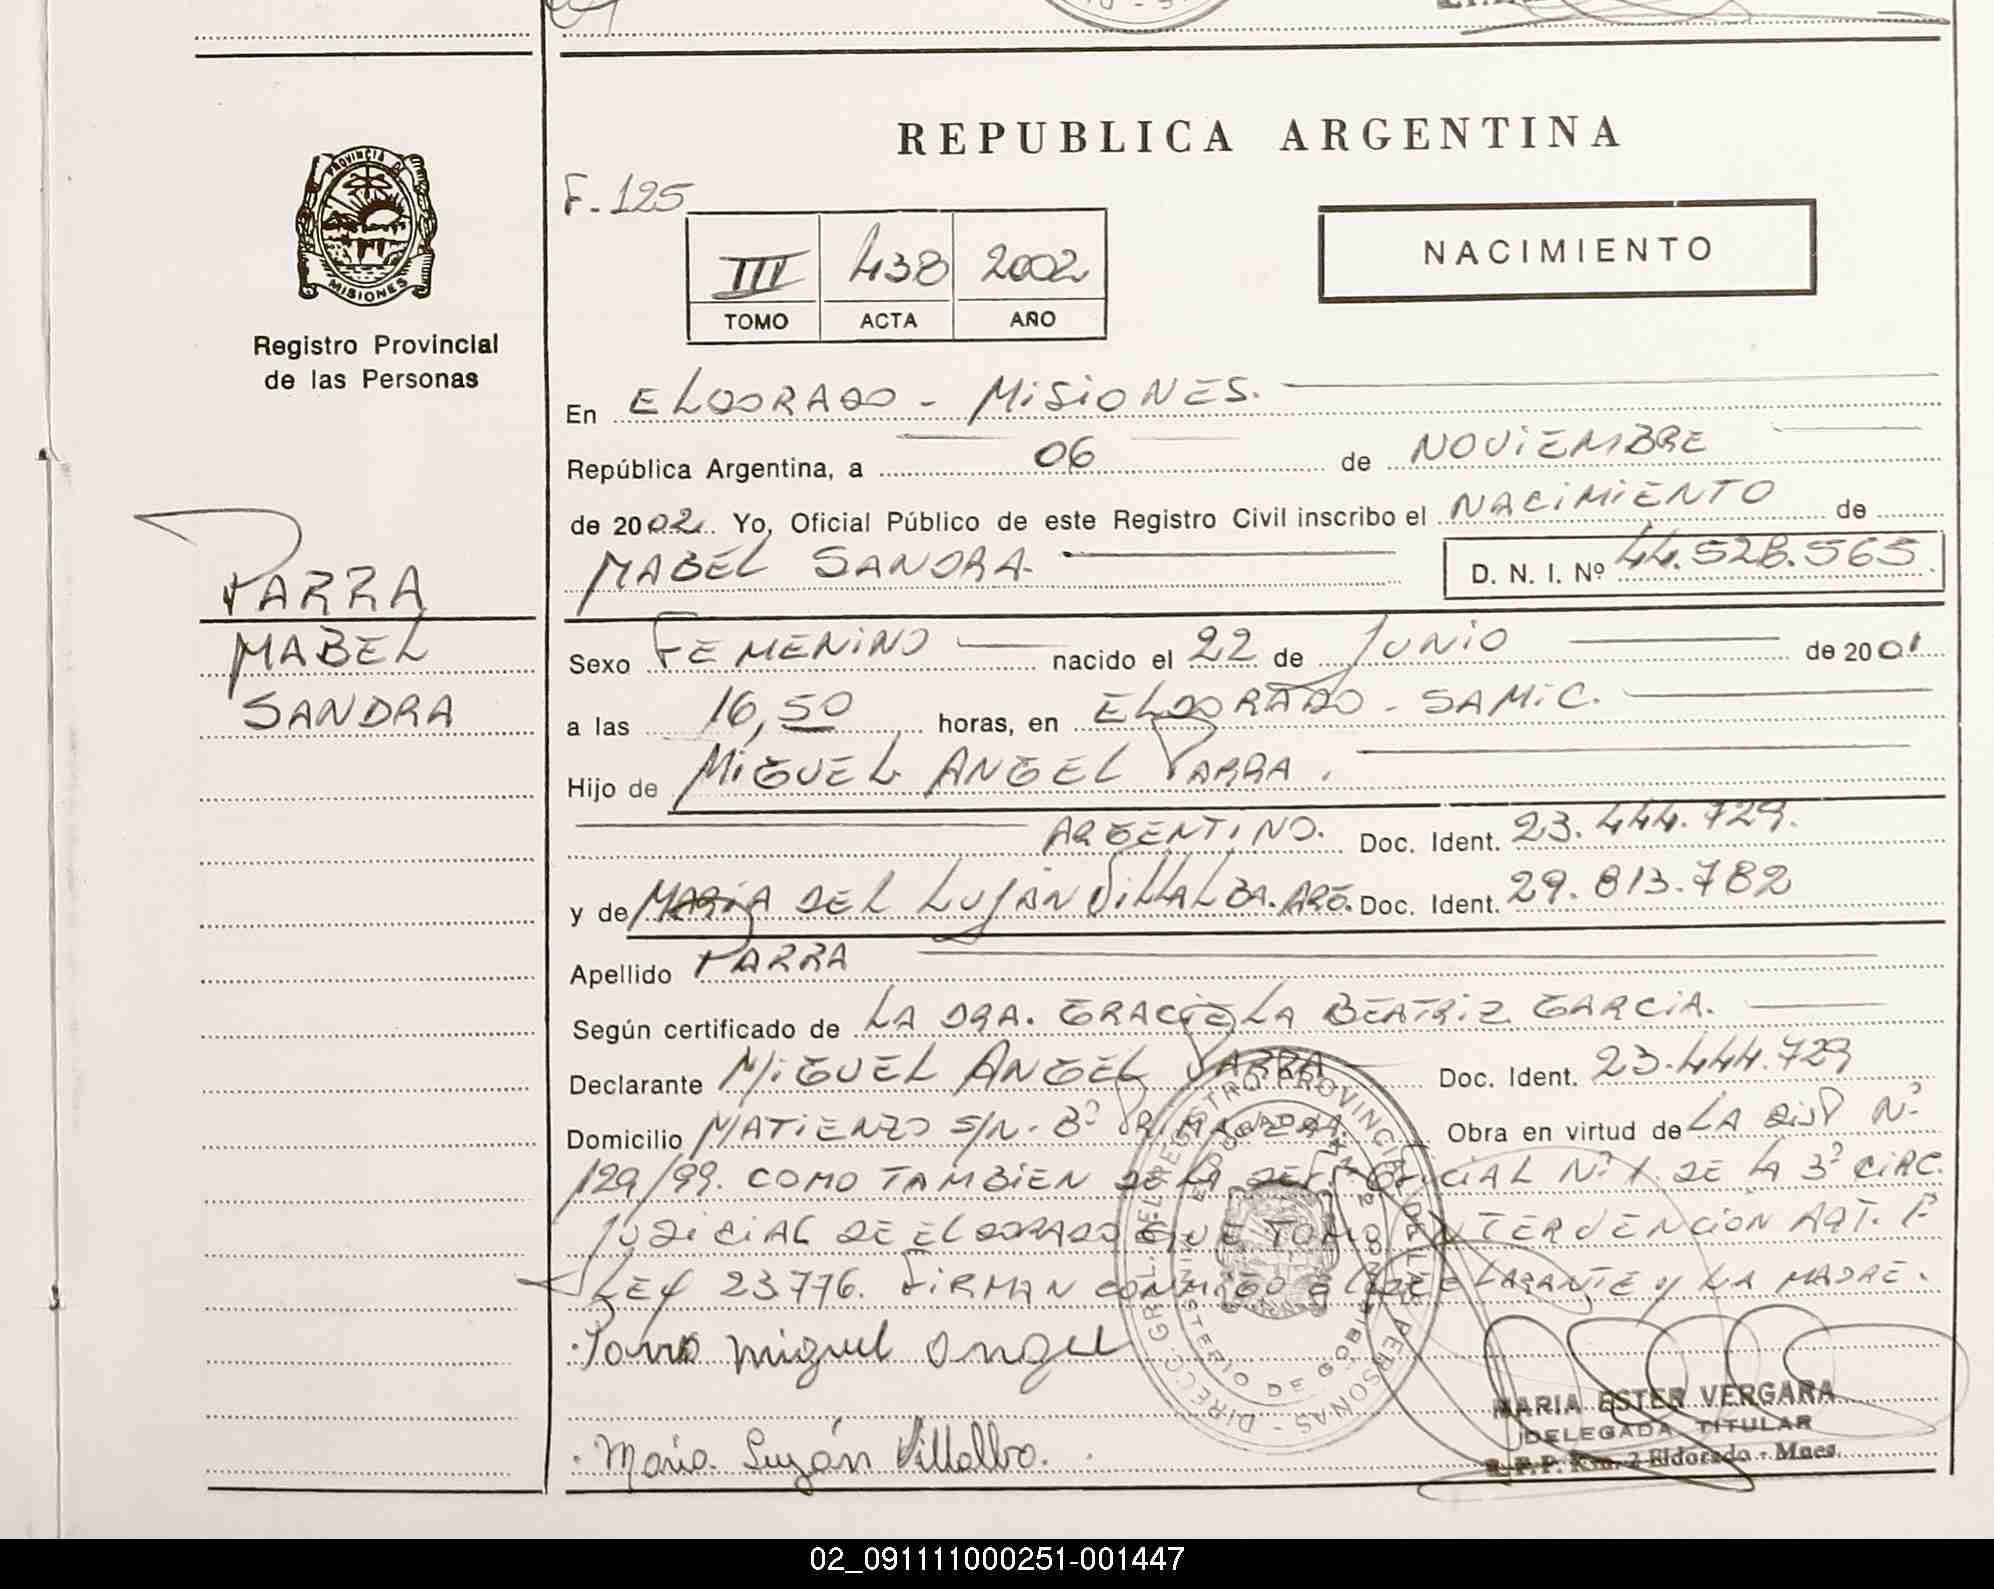 REPUBLICA ARGENTINA
PROVINCIA DE
MISIONES
Registro Provincial
de las Personas
F. 125
III 438 2002
TOMO ACTA AÑO
NACIMIENTO
En ELDORADO - MISIONES.
República Argentina, a 06 de NOVIEMBRE
de 2002. Yo, Oficial Público de este Registro Civil inscribo el NACIMIENTO de
MABEL SANDRA. D. N. I. Nº 44.528.565
PARRA
MABEL
SANDRA
Sexo FEMENINO nacido el 22 de JUNIO de 2001
a las 16,50 horas, en ELDORADO - SAMIC.
Hijo de MIGUEL ANGEL PARRA.
ARGENTINO. Doc. Ident. 23.444.729.
y de MARIA DEL LUJÁN VILLALBA. ARG. Doc. Ident. 29.813.782
Apellido PARRA
Según certificado de LA DRA. GRACIELA BEATRIZ GARCIA.
Declarante MIGUEL ANGEL PARRA Doc. Ident. 23.444.729
Domicilio MATIENZO S/N. Bº PRIMAVERA. Obra en virtud de LA DISP Nº
129/99. COMO TAMBIEN DE LA DEF. OFICIAL Nº 1. DE LA 3º CIRC.
JUDICIAL DE ELDORADO QUE TOMO INTERVENCION ART. 1º
LEY 23776. FIRMAN CONMIGO EL DECLARANTE y LA MADRE.
Parra Miguel Angel
Maria Luján Villalba.
MARIA ESTER VERGARA
DELEGADA TITULAR
R.P.P. Km. 2 Eldorado - Mnes.
DIRECC. GRL. DEL REGISTRO PROVINCIAL DE LAS PERSONAS
MINISTERIO DE GOBIERNO
02_091111000251-001447